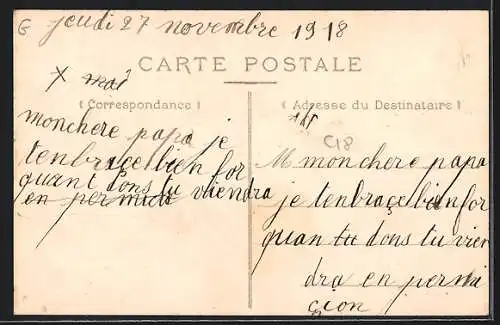 jeudi 27 novembre 1918
CARTE POSTALE
Correspondance
monchere papa je
tenbraçe bien for
quant dons tu viendra
en permici
Adresse du Destinataire
C18
M monchere papa
je tenbraçe bien for
quan tu dons tu vien
dra en permi
çion